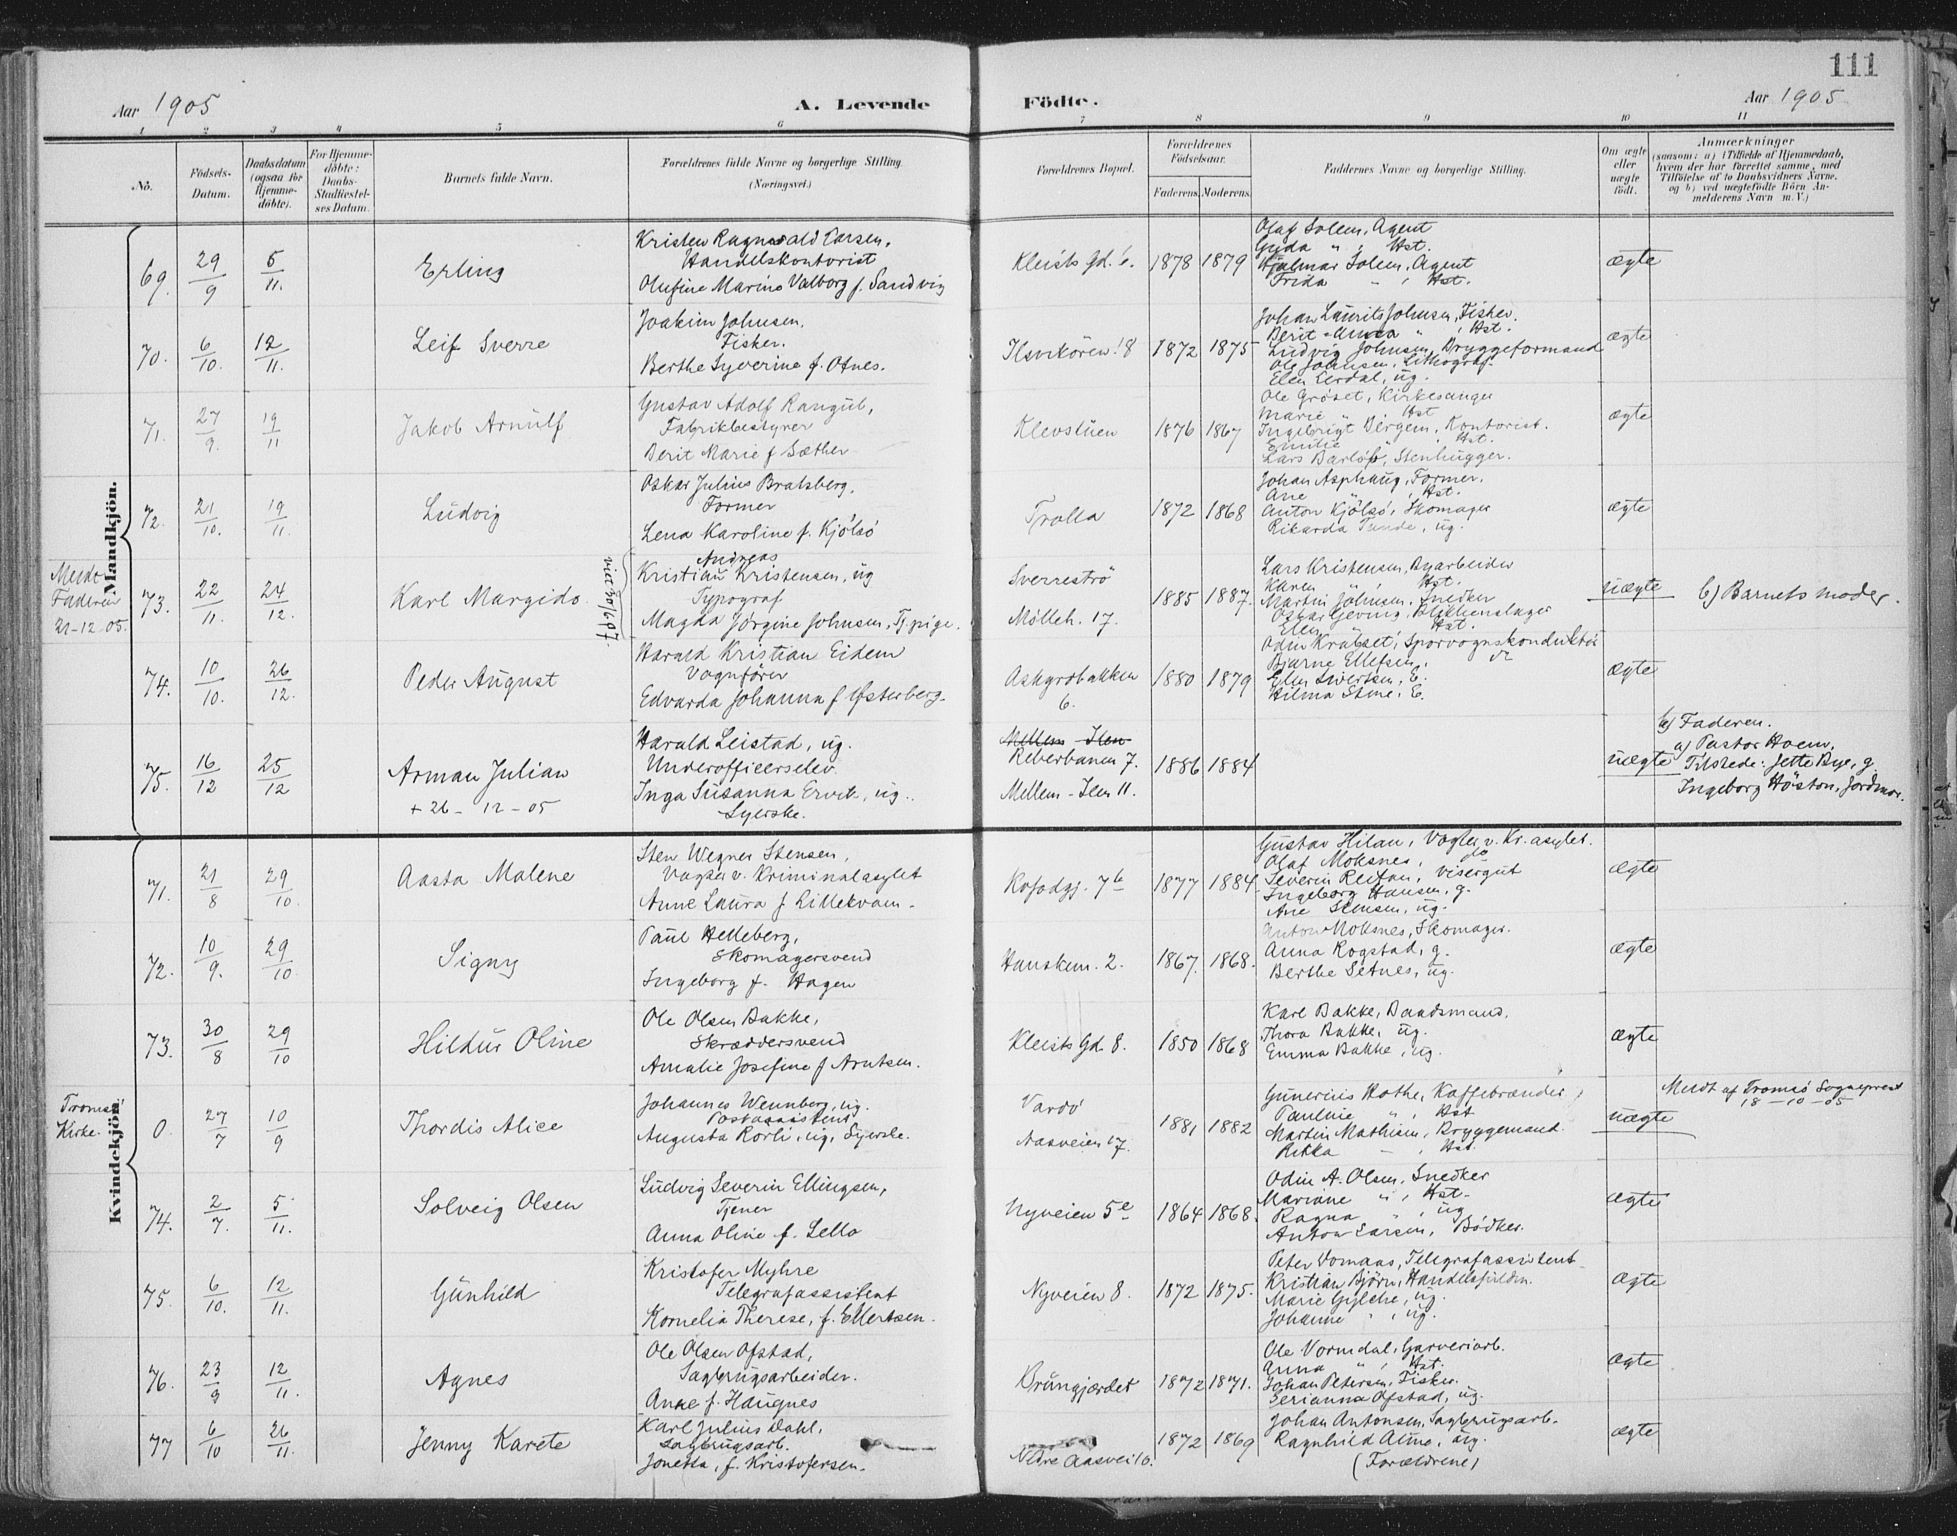 111
Aar 1905
A. Levende
Födte.
Aar 1905
1 2 3 4 5 6 7 8 9 10 11
No.
Födsels-
Datum.
Daabsdatum
(ogsaa for
Hjemme-
döbte).
For Hjemme-
döbte:
Daabs-
Stadfæstel-
ses Datum.
Barnets fulde Navn.
Forældrenes fulde Navne og borgerlige Stilling.
(Næringsvei.)
Forældrenes Bopæl.
Forældrenes
Födselsaar.
Faderens. Moderens.
Faddernes Navne og borgerlige Stilling.
Om ægte
eller
uægte
født.
Anmærkninger
(saasom: a) i Tilfælde af Hjemmedaab,
hvem der har forrettet samme, med
Tilföielse af to Daabsvidners Navne.
og b) ved uægtefödte Börn An-
melderens Navn m. V.)
Mandkjön.
69. 29/9 5/11. Erling
Kristen Ragnvald Larsen,
Handelskontorist
Olufine Marine Valborg f. Sandvig
Kleists Gd. 6. 1878 1879
Olaf Solem, Agent
Gyda " , Hst.
Hjalmar Solem, Agent
Frida " , Hst.
ægte
70. 6/10. 12/11. Leif Sverre
Joakim Johnsen,
Fisker.
Berthe Syverine f. Otnes.
Ilsvikören 18 1872 1875
Johan Laurits Johnsen, Fisker.
Berit Anna " , Hst.
Ludvig Johnsen, Bryggeformand
Ole Johnsen, Lithograf.
Elen Lerdal, ug.
ægte
71. 27/9. 19/11 Jakob Arnulf
Gustav Adolf Rangul,
Fabrikbestyrer
Berit Marie f Sæther
Klevstuen 1876 1867
Ole Gröset, Kirkesanger
Marie " Hst
Ingebrigt Bergem, Kontorist.
Emilie Hst.
Lars , Stenhugger.
ægte
72. 21/10. 19/11. Ludvig
Oskar Julius Bratsberg,
Former
Lena Karoline f. Kjölsö
Trolla 1872 1868
Johan Asphaug, Former.
Ane , Hst.
Anton Kjölsö, Skomager
Rikarda Tunde, ug.
ægte
Meldt
Faderen
21-12-05.
73. 22/11. 24/12. Karl Margido.
viet 30/6 07.
Andreas
Kristian Kristensen, ug
Typograf
Magda Jörgine Johnsen, Tj.pige.
Sverreströ
Mölleb. 17. 1885 1887.
Lars Kristensen, Byarbeider
Karen Hst.
Martin Johnsen, Snedker
Oskar Gjeving, Blikkenslager
Elen " Hst.
uægte b) Barnets moder.
74. 10/10. 26/12. Peder August
Harald Kristian Eidem
Vognförer
Edvarda Johanna f Österberg.
Askgrobakken
6. 1880 1879
Odin Krabset, Sporvognskonduktör
Bjarne Ellefsen, do
Elen Sivertsen, E.
Hilma Stene, E.
ægte
75. 16/12 25/12 Arman Julian
+ 26 - 12 - 05
Harald Leistad, ug.
Underofficerselev
Inga Susanna Ervik, ug.
Syerske.
Mellem Ilen
Reberbanen 7.
Mellem-Ilen 11. 1886 1884
uægte
b) Faderen.
a) Pastor Hoem,
Tilstede: Jette Bye, g.
Ingeborg Höston, Jordmor.
Kvindekjön.
71. 21/8 29/10. Aasta Malene
Sten Wegner Stensen,
Vogter v. Kriminalasylet
Anne Laura f Lillekvam.
Kofodgj. 7b 1877 1884
Gustav Hilan, Vogter v. Kr.asylet.
Olaf Moksnes, do
Severin Reitan, Visergut
Ingeborg Hansen, g.
Ane Stensen, ug.
ægte
72. 10/9. 29/10 Signy
Paul Helleberg,
Skomagersvend
Ingeborg f. Hagen
Hanskem. 2. 1867. 1868.
Anton Moksnes, Skomager.
Anna Rogstad, g.
Berthe Setnes, ug.
ægte
73. 30/8 29/10 Hildur Oline
Ole Olsen Bakke,
Skræddersvend
Amalie Josefine f Arntsen.
Kleists Gd. 8. 1850 1868
Karl Bakke, Baadsmand,
Thora Bakke, ug.
Emma Bakke, ug.
ægte
Tromsö
Kirke.
0. 27/7 10/9 Thordis Alice
Johannes Wennberg, ug.
Postassistent
Augusta Rörli, ug, Syerske.
Vardö
Aasveien 17. 1881 1882
Gunerius Hothe, Kaffebrænder,
Pauline " , Hst
Martin Mathisen, Bryggemand.
Rikka - , Hst.
uægte
Meldt af Tromsö Sogneprest
18 - 10 - 05
74. 2/7. 5/11. Solveig Olsen
Ludvig Severin Ellingsen,
Tjener
Anna Oline f. Lello
Nyveien 5e 1864 1868.
Odin A. Olsen, Snedker
Mariane " , Hst.
Ragna " , ug
Anton Larsen, Bödker.
ægte
75. 6/10. 12/11. Gunhild
Kristofer Myhre
Telegrafassistent
Kornelia Therese, f. Ellertsen.
Nyveien 8. 1872 1875.
Peter Vomaas, Telegrafassistent
Kristian Björn, Handelsfuldm.
Marie Gylche, ug.
Johanne " , ug.
ægte
76. 23/9 12/11. Agnes
Ole Olsen Ofstad,
Sagbrugsarbeider.
Anne f. Haugnes
Brungjærdet 1872 1871.
Ole Vormdal, Garveriarb.
Anna " , Hst.
Johan Petersen, Fisker.
Serianna Ofstad, ug.
ægte
77 6/10 26/11. Jenny Karete
Karl Julius Dahl,
Sagbrugsarb.
Jonetta, f. Kristofersen.
Nedre Aasvei 16. 1872 1869
Johan Antonsen, Sagbrugsarb.
Ragnhild Aune, ug.
(Forældrene)
ægte